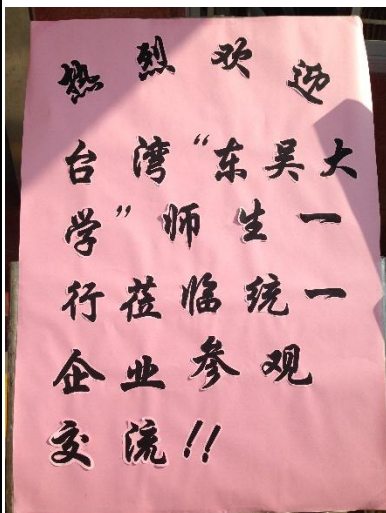 热烈欢迎
台湾“东吴大
学”师生一
行莅临统一
企业参观
交流!!